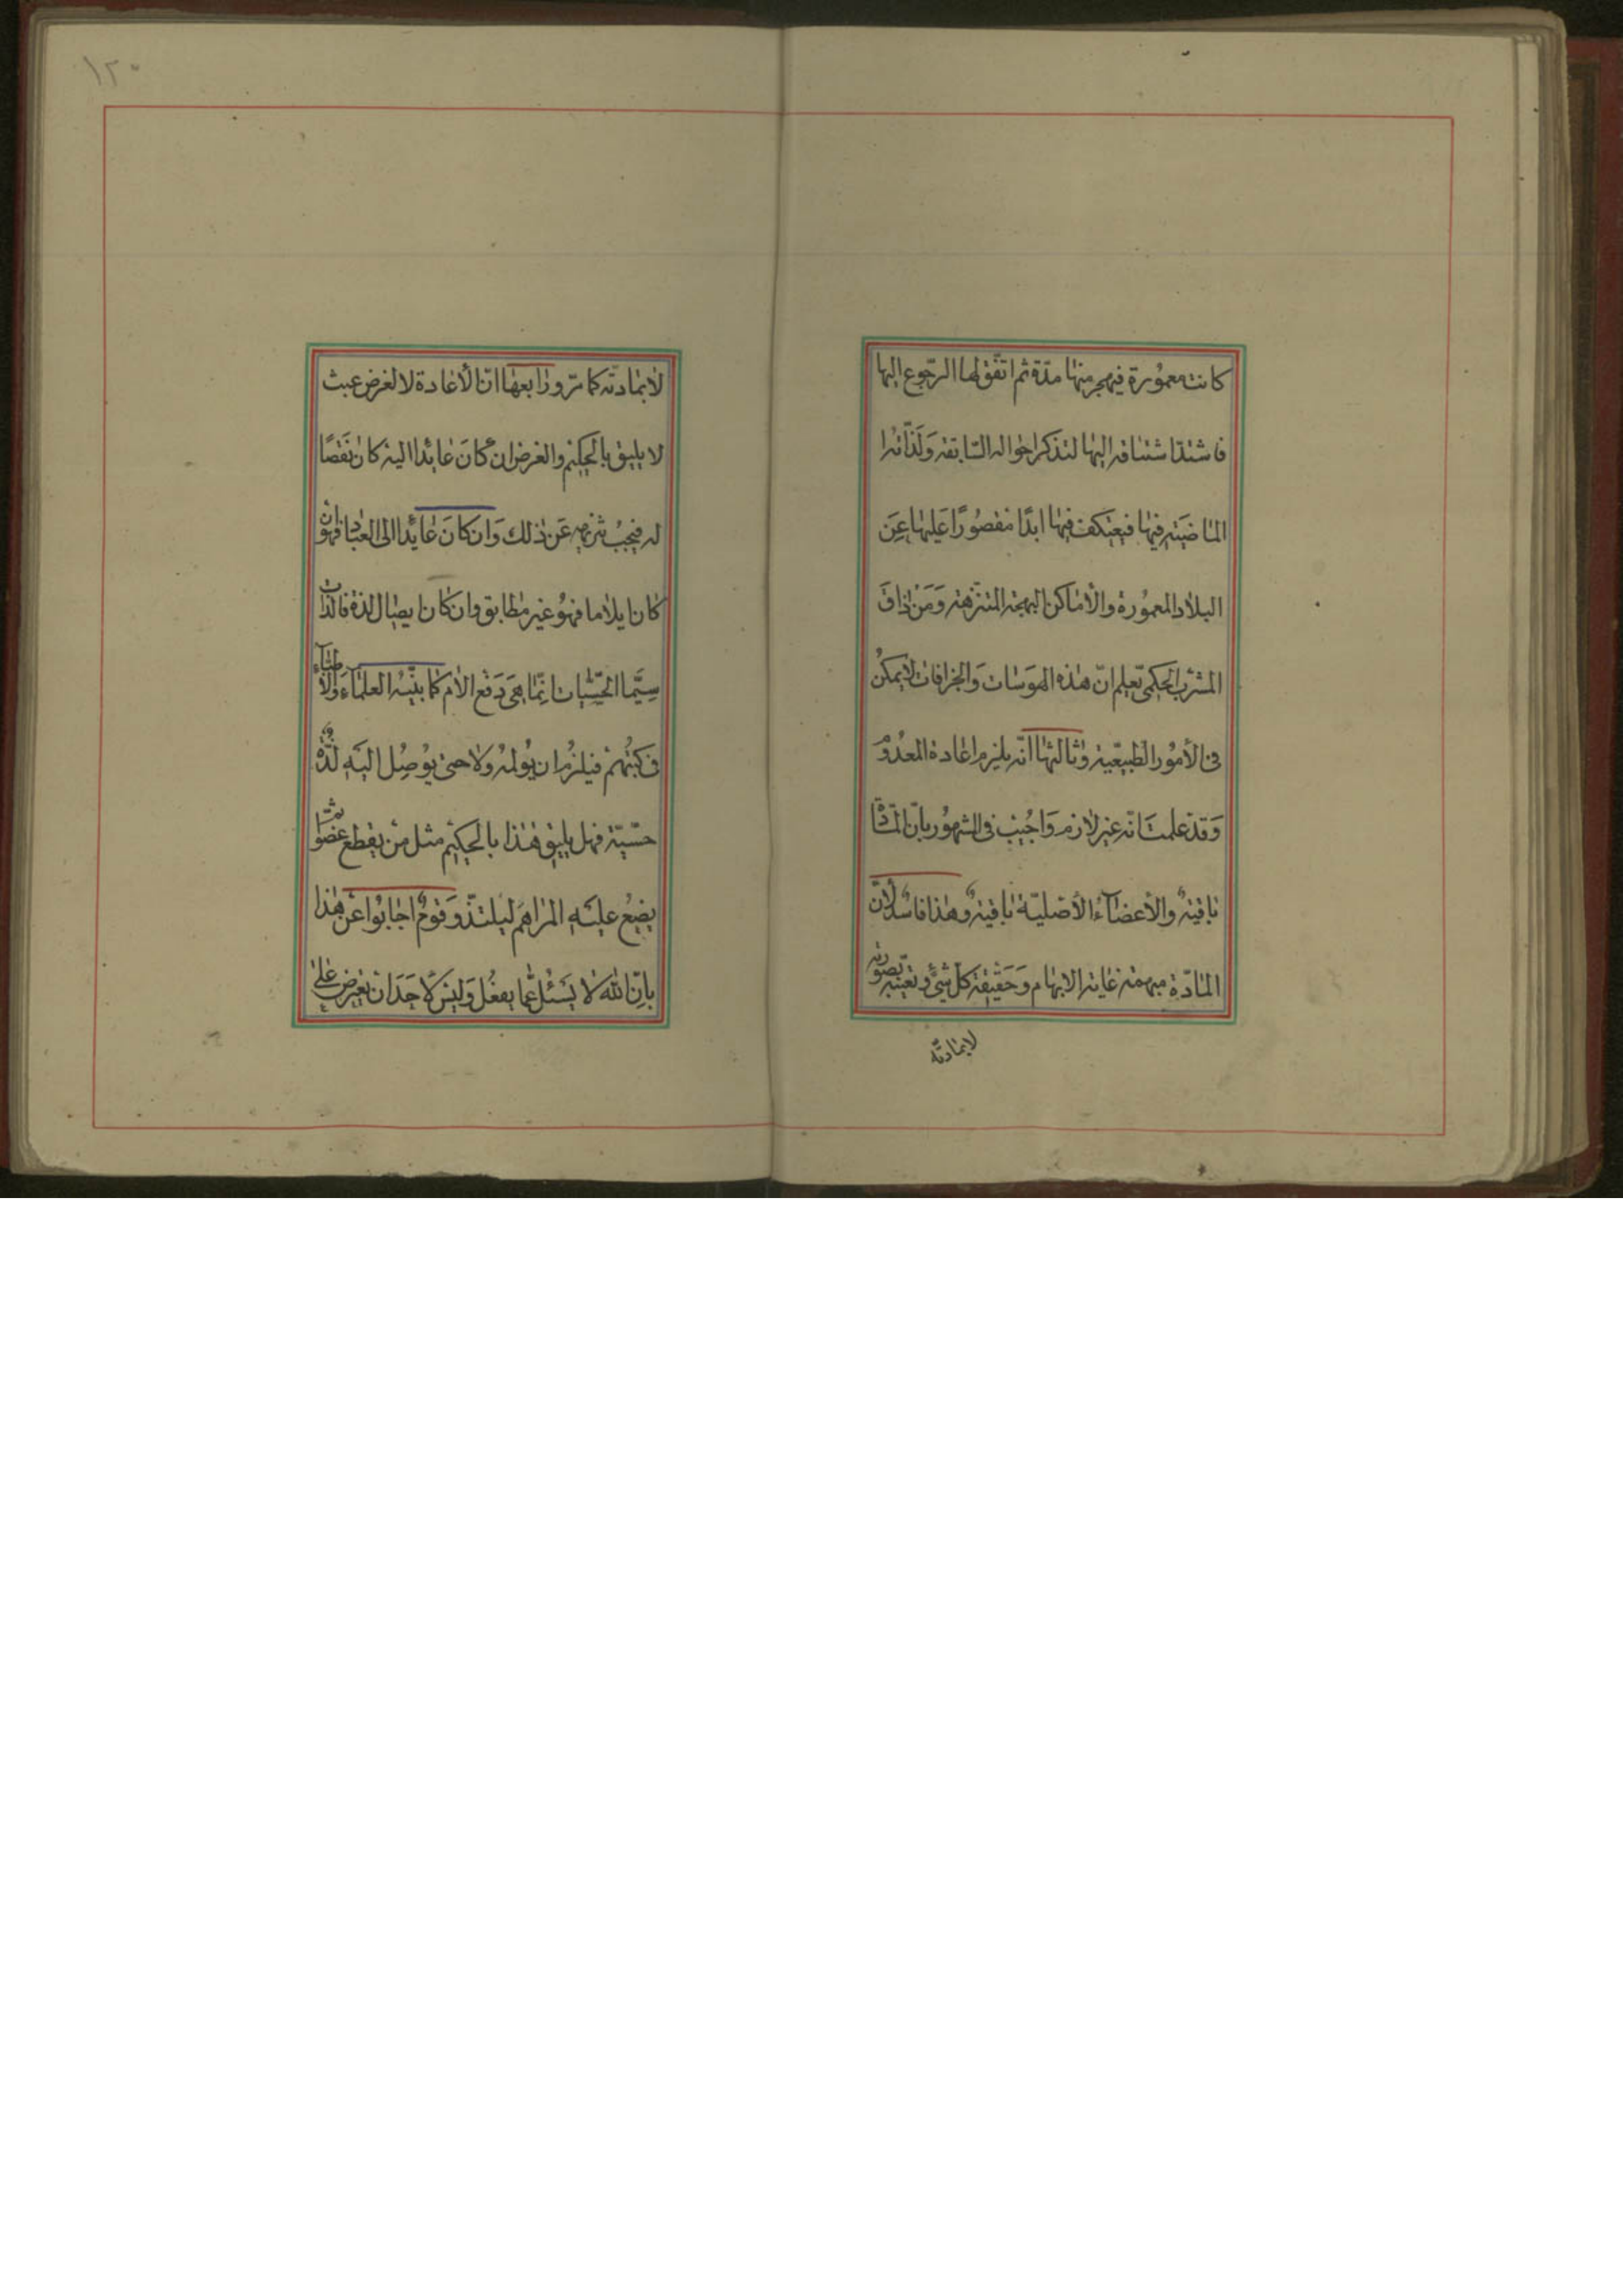 كانت معمورة فيهجر منها مدّة ثم اتّفق لها الرّجوع اليها
فاشتدّ اشتياقه اليها لتذكر احواله السّابقة وَلَذّاته
الماضَية فيها فيعتكف فيها ابدًا مقصُورًا عَليها عِنَ
البلاد المعمُورة والأماكن البهجة المتنزّهة وَمَنْ ذاقَ
المشرب الحكمى تعلم انّ هذه الهوَسَات وَالجزافات لايمكنُ
فى الأمُور الطّبيعّية وثالثها انّه يلزم اعادة المعدُوم
وَقد علمتَ انّه غير لازم وَاجُيبَ فى المشهُور بانّ المادّة
باقيةٌ والأعضآءُ الأصليّة باقيةٌ وهذا فاسدٌ لأنّ
المادّة مبهمة غاية الابهام وَحَقيقة كلّ شئ وتعينه بصورته
لابمادته
١٢٠
لابمادته كما مرّ ورَابعها انّ الأعادة لا لغرض عبث
لا يليق بالحَكيم والغرض ان كانَ عايدا اليه كان نَقصًا
له فيجبُ تنزيهه عَن ذلك وَان كانَ عايدًا الى العباد فهو ان
كان ايلاما فهوُ غير مطابق وان كان ايصال لذة فاللذات
سِيَّما الحسّيّات انِمّا هىَ دَفع الالام كما بيّنه العلمآءَ وَالأطبّآء
فى كتبُهم فيلزمُ ان يُولمهُ ولا حتىّ يوُصِلُ اليَه لَذّة
حسّيّة فهل يليق هَذا بالحكيم مثل من يقطع عضوًا ثمّ
يضَعُ عليَه المراهَم ليلتذّ وَقومٌ اجابُوا عَن هذا
بانّ اللهَ لا يَسْئل عمّا يفعُل وَليسَ لأحَدَ ان يعترض على